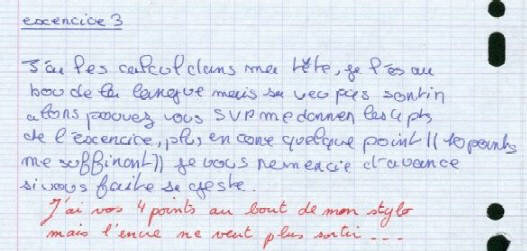 exercice 3
J'ai les calcul dans ma tête, je l'es au
bou de la langue mais sa veu pas sortir
alors pouvez vous SVP me donner les 4 pts
de l'exercice, plus, encore quelque point || 10 points
me suffiront || je vous remercie d'avance
si vous faite se geste.
J'ai vos 4 points au bout de mon stylo
mais l'encre ne veut plus sortir ...